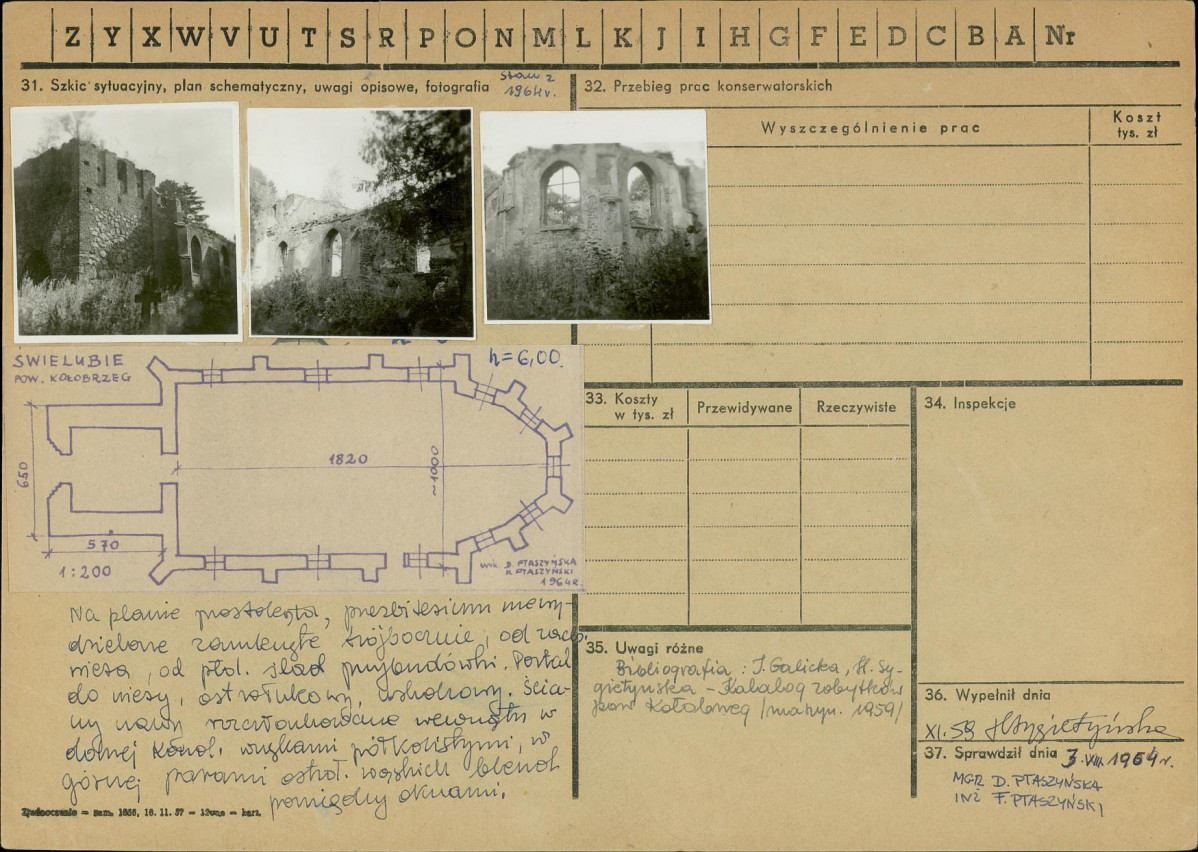 Z Y X W V U T S R P O N M L K J I H G F E D C B A Nr
31. Szkic sytuacyjny, plan schematyczny, uwagi opisowe, fotografia
Stan z
1964r.
32. Przebieg prac konserwatorskich
Wyszczególnienie prac
Koszt
tys. zł
ŚWIELUBIE
POW. KOŁOBRZEG
h=6,00.
650
1820
~1000
570
1:200
wyk. D. PTASZYŃSKA
F. PTASZYŃSKI
1964r.
Na planie prostokąta, prezbiterium niewy-
dzielone zamknięte trójbocznie, od zach.
wieża, od płd. ślad przybudówki. Portal
do wieży, ostrołukowy, uskokowy. Ścia-
ny nawy rozczłonkowane wewnątrz w
dolnej kond. wnękami półkolistymi, w
górnej parami ostroł. wąskich blend
pomiędzy oknami.
33. Koszty
w tys. zł
Przewidywane
Rzeczywiste
34. Inspekcje
35. Uwagi różne
Bibliografia: I. Galicka, H. Sy-
gietyńska – Katalog zabytków
pow. Kołobrzeg /maszyn. 1959/
36. Wypełnił dnia
XI.59 HSygietyńska
37. Sprawdził dnia 3.VIII.1964r.
MGR D. PTASZYŃSKA
INŻ F. PTASZYŃSKI
Zjednoczenie – zam. 1656, 16. 11. 57 – – kart.